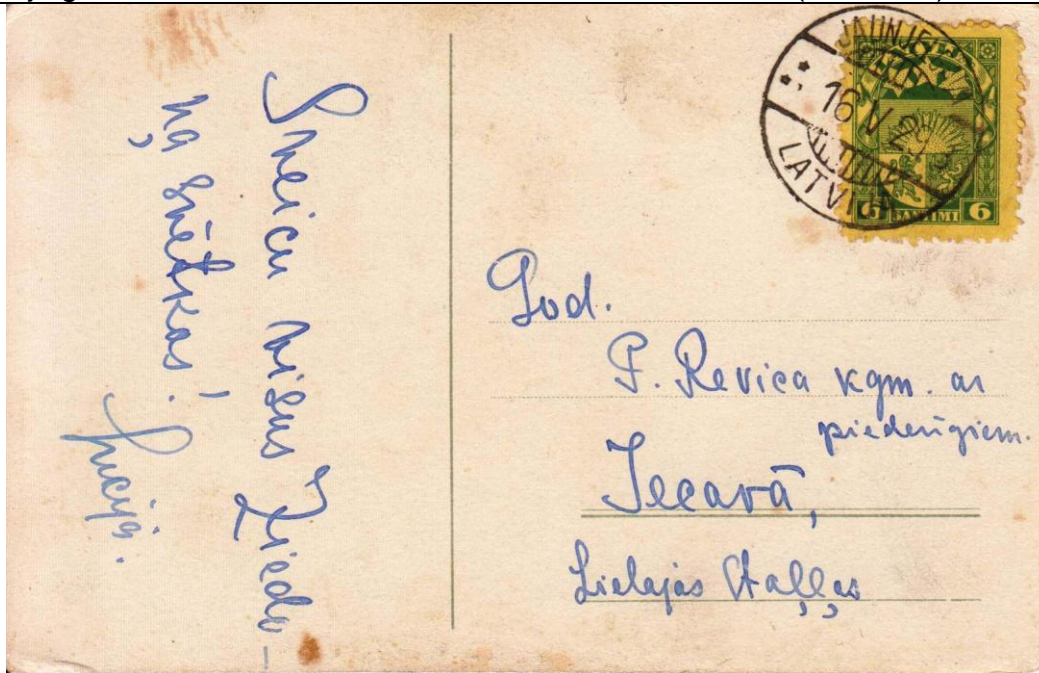 Sveicu visus Ziedo-
ņa svētkos!
Lucija.
JAUNJE
16 V 29
LATVIJA
SANTIMI 6
God.
P. Revica kgm. ar
piederīgiem.
Iecavā,
Lielajās Staļļos